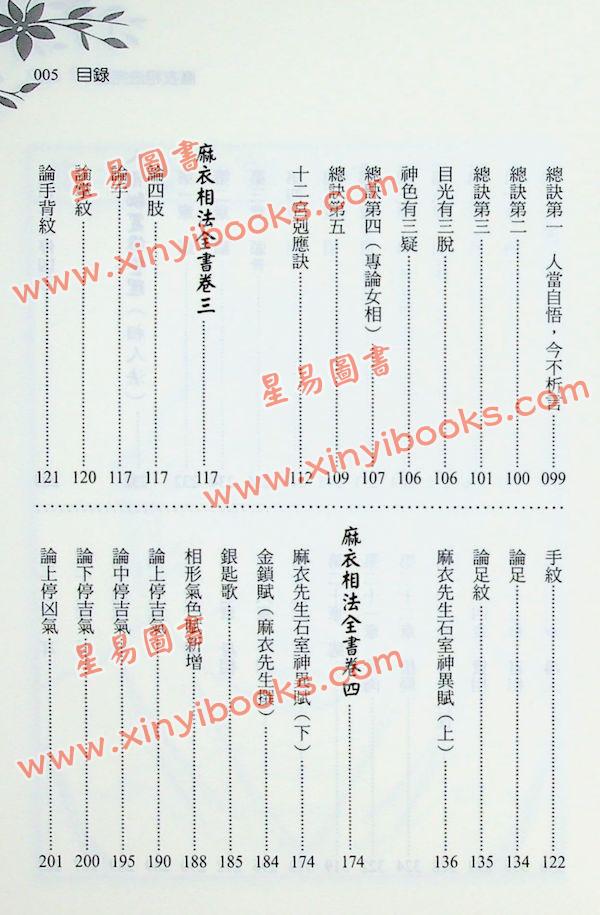 005 目錄
總訣第一 人當自悟，今不析言 099
總訣第二 100
總訣第三 101
目光有三脫 106
神色有三疑 106
總訣第四（專論女相） 107
總訣第五 109
十二宮剋應訣 112
麻衣相法全書卷三 117
論四肢 117
論手 117
論掌紋 120
論手背紋 121
手紋 122
論足 134
論足紋 135
麻衣先生石室神異賦（上） 136
麻衣相法全書卷四 174
麻衣先生石室神異賦（下） 174
金鎖賦（麻衣先生撰） 184
銀匙歌 185
相形氣色賦新增 188
論上停吉氣 190
論中停吉氣 195
論下停吉氣 200
論上停凶氣 201
星易圖書
www.xinyibooks.com
星易圖書
www.xinyibooks.com
星易圖書
www.xinyibooks.com